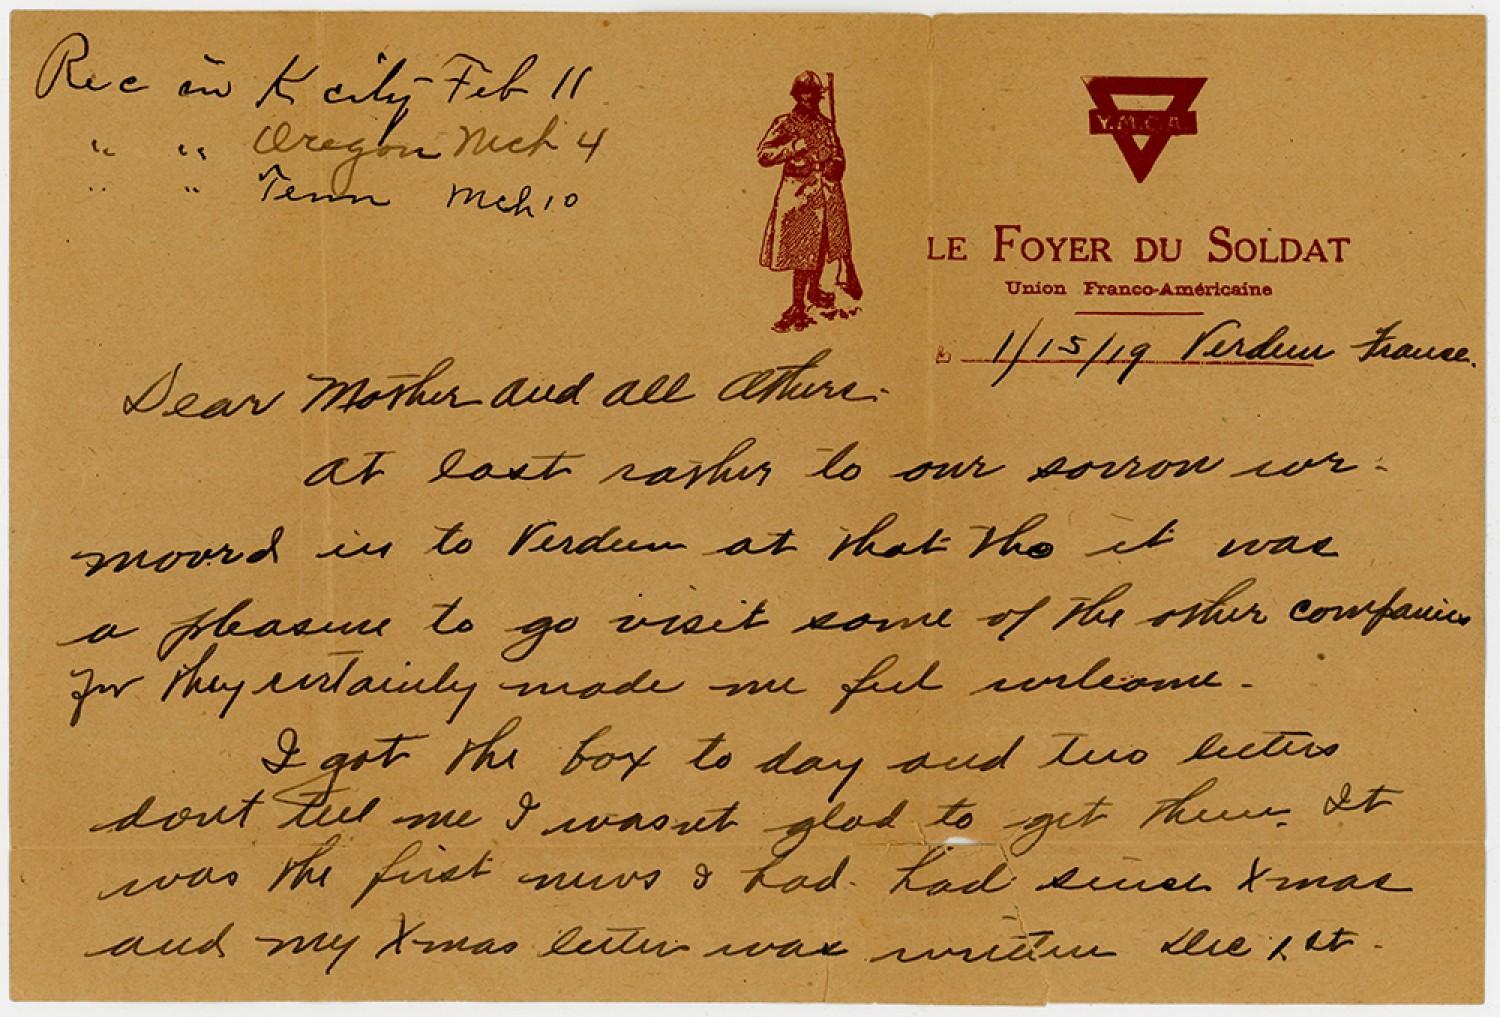 Rec in K city Feb 11
" " Oregon Mch 4
" " Tenn Mch 10
Y.M.C.A.
LE FOYER DU SOLDAT
Union Franco-Américaine
1/15/19 Verdun France.
Dear Mother and all others.
At last rather to our sorrow we
moved in to Verdun at that tho it was
a pleasure to go visit some of the other companies
for they certainly made me feel welcome.
I got the box to day and two letters
dont tell me I wasnt glad to get them. It
was the first news I had had since Xmas
and my Xmas letter was written Dec 1st.